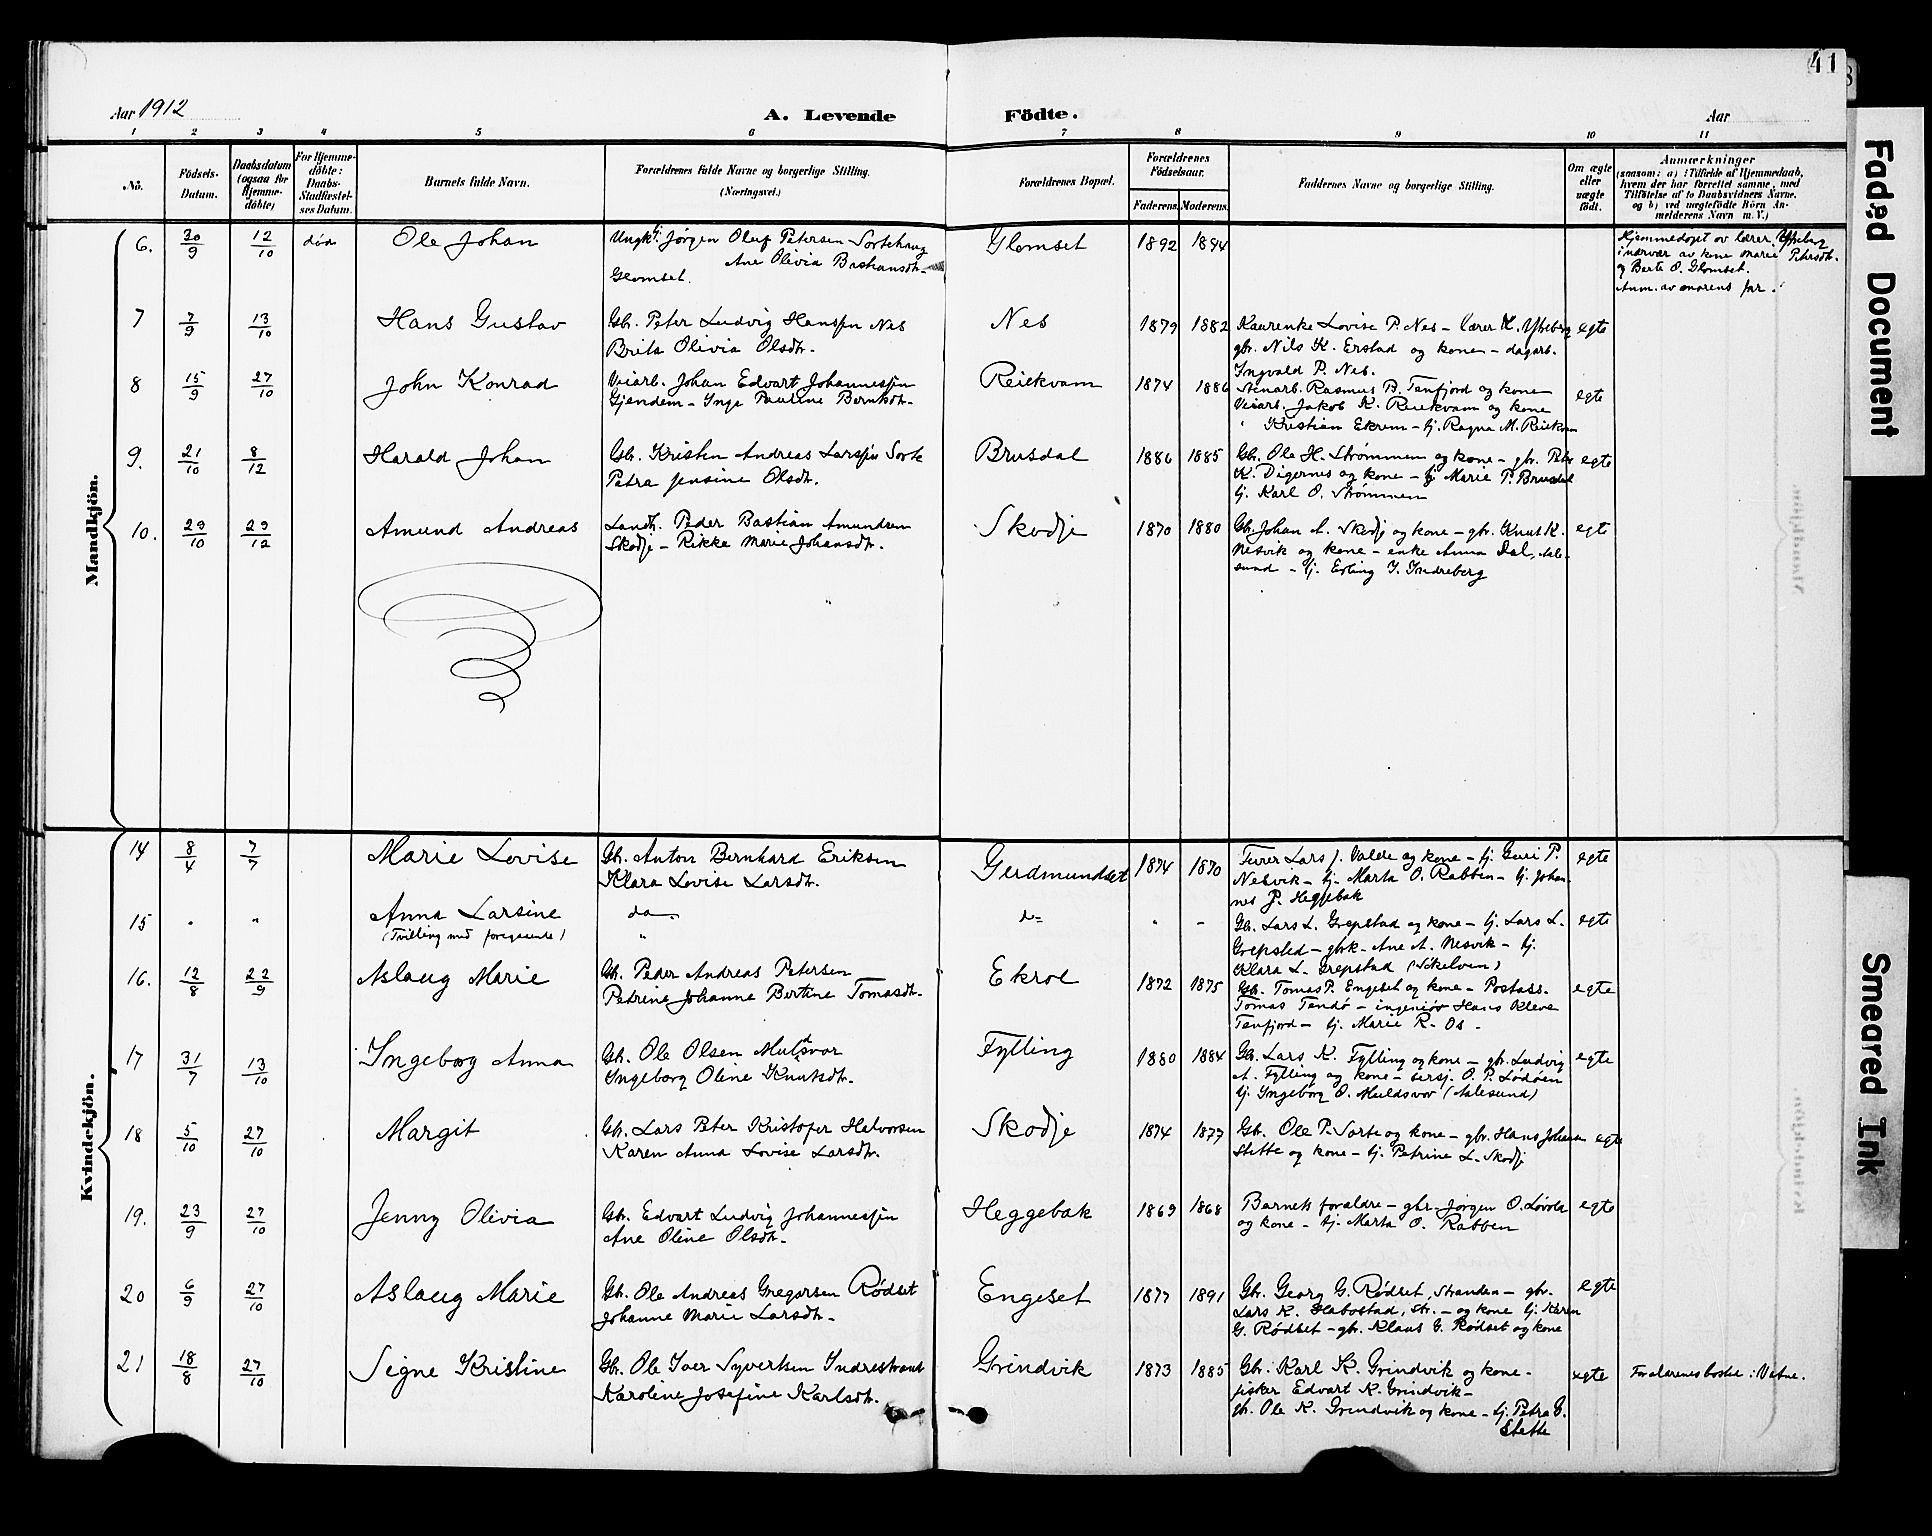 41
Aar 1912
A. Levende Födte.
Aar
1 2 3 4 5 6 7 8 9 10 11
No.
Födsels-Datum.
Daabsdatum (ogsaa for Hjemme-döbte)
For Hjemme-döbte: Daabs-Stadfæstel-ses Datum.
Barnets fulde Navn.
Forældrenes fulde Navne og borgerlige Stilling. (Næringsvei.)
Forældrenes Bopæl.
Forældrenes Födselsaar.
Faderens. Moderens.
Faddernes Navne og borgerlige Stilling.
Om ægte eller uægte födt.
Anmærkninger
(saasom: a) i Tilfælde af Hjemmedaab,
hvem der har forrettet samme, med
Tilföielse af to Daabsvidners Navne.
og b) ved uægtefödte Börn An-
melderens Navn m. V.)
Mandkjön.
6. 30/9 12/10 död Ole Johan
Ungk. Jørgen Oluf Petersen Sortehaug
Ane Olivia Bastiansdtr.
Glomset.
Glomset 1892 1894
Hjemmedøpt av lærer Ytreberg
i nærvær av kone Marie Petersdtr.
og Berte O. Glomset.
Anm. av morens far.
7 7/9 13/10 Hans Gustav
Gbr. Peter Ludvig Hanssen Nes
Brita Olivia Olsdtr.
Nes 1879 1882
Laurenke Lovise P. Nes - lærer K. Ytreberg
gbr. Nils K. Erstad og kone - dagarb.
Ingvald P. Nes.
egte
8 15/9 27/10 John Konrad
Veiarb. Johan Edvart Johannessen
Gjendem - Inga Pauline Berntsdtr.
Reiekvam 1874 1886
Stenarb. Rasmus B. Tenfjord og kone
Veiarb. Jakob K. Reiekvam og kone
" Kristian Ekrem - tj. Ragna M. Reiekvam
egte
9. 21/10 8/12 Harald Johan
Gbr. Kristen Andreas Larssen Sorte
Petra Jensine Olsdtr.
Brusdal 1886 1885
Gbr. Ole H. Strømmen og kone - gbr. Peter
K. Digernes og kone - tj. Marie P. Brusdal
tj. Karl O. Strømmen
egte
10. 29/10 29/12 Amund Andreas
Landh. Peder Bastian Amundsen
Skodje - Rikke Marie Johansdtr.
Skodje 1870 1880
Gbr. Johan A. Skodje og kone - gbr. Knut K.
Nesvik og kone - enke Anna Dal, Aale-
sund - tj. Erling I. Indreberg
egte
Kvindekjön.
14 8/4 7/7 Marie Lovise
Gbr. Anton Bernhard Eriksen
Klara Lovise Larsdtr.
Gerdmundset 1874 1870
Lars J. Valde og kone - tj. Guri P.
Nesvik - tj. Marta O. Rabben - tj. Johan-
nes P. Heggebak
egte
15 " " Anna Larsine
(Tvilling med foregaaende)
do
"
do " -
Gbr. Lars L. Grepstad og kone - tj. Lars L.
Grepstad - gbrk. Ane A. Nesvik - tj.
Klara L. Grepstad (Sökelven)
egte
16. 12/8 22/9 Aslaug Marie
Gbr. Peder Andreas Petersen
Petrine Johanne Bertine Tomasdtr.
Ekrol 1872 1875
Gbr. Tomas P. Engeset og kone - Postass.
Tomas Tandö - ingeniör Hans Kleve
Tenfjord - tj. Marie R. Os -
egte
17 31/7 13/10 Ingeborg Anna
Gbr. Ole Olsen Muldsvor
Ingeborg Oline Knutsdtr.
Fylling 1880 1884
Gbr. Lars K. Fylling og kone - gbr. Ludvig
A. Fylling og kone - sersj. O. P. Lødøen
tj. Ingeborg O. Muldsvor (Aalesund)
egte
18 5/10 27/10 Margit
Gbr. Lars Peter Kristofer Halvorsen
Karen Anna Lovise Larsdtr.
Skodje 1874 1877
Gbr. Ole P. Sorte og kone - gbr. Hans Johan
Stette og kone - tj. Petrine L. Skodje
egte
19. 23/9 27/10 Jenny Olivia
Gbr. Edvart Ludvig Johannessen
Ane Oline Olsdtr.
Heggebak 1869 1868
Barnets foraldre - gbr. Jørgen O. Løvold
og kone - tj. Marta O. Rabben
egte
20 6/9 27/10 Aslaug Marie
Gbr. Ole Andreas Gregersen Rödset
Johanne Marie Larsdtr.
Engeset 1877 1891
Gbr. Georg G. Rödset, Stranden - gbr.
Lars K. Habostad, Str. - og kone tj. Karen
G. Rödset - gbr. Klaus G. Rödset og kone
egte
21 18/8 27/10 Signe Kristine
Gbr. Ole Iver Syvertsen Indrestrand
Karoline Josefine Karlsdtr.
Grindvik 1873 1885
Gbr. Karl K. Grindvik og kone -
fisker Edvart K. Grindvik -
gbr. Ole K. Grindvik og kone - tj. Petra E.
Stette
egte
Foraldrenes bosted: Vatne.
Faded Document
Smeared Ink